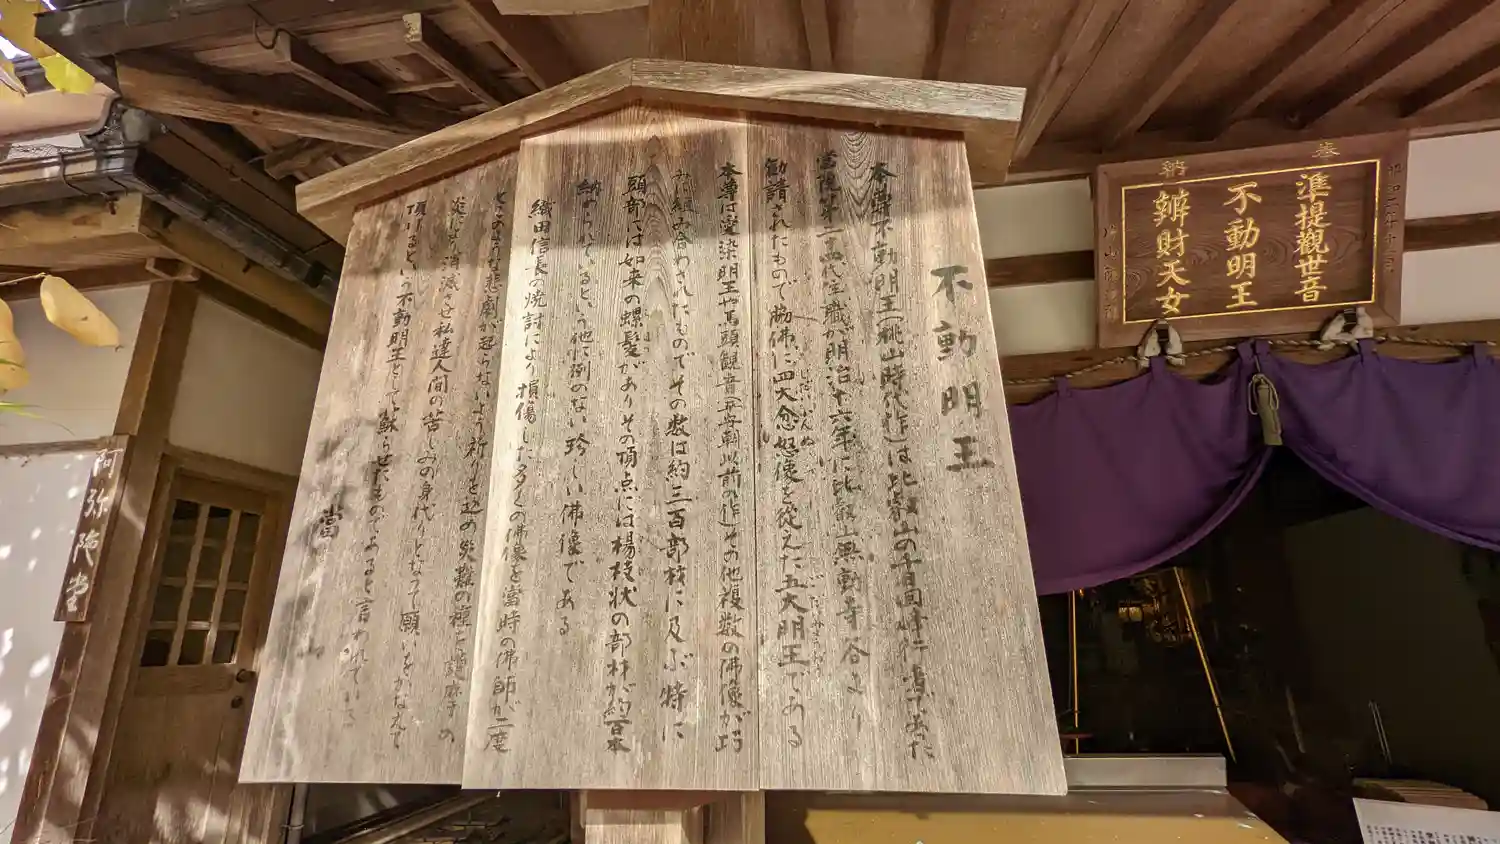 不動明王
本尊不動明王(桃山時代作)は比叡山の千日回峰行者であた
當院第二十四代住職が明治十六年に比叡山無動寺谷より
勧請されたもので脇佛に四大忿怒像を従えた五大明王である
本尊は愛染明王や馬頭観音(平安朝以前の作)その他複数の佛像が巧
みに組み合わされたものでその数は約三百部材に及ぶ特に
頭部には如来の螺髪がありその頂点には楊枝状の部材が約百本
納められているという他に例のない珍しい佛像である
織田信長の焼討により損傷した多くの佛像を當時の佛師が二度
とこのような悲劇が起らないよう祈りを込め災難の種を護摩の
炎にて消滅させ私達人間の苦しみの身代りとなって願いをかなえて
頂けるという不動明王として蘇らせたものであると言われている
當山
奉納
準提觀世音
不動明王
辨財天女
阿弥陀堂